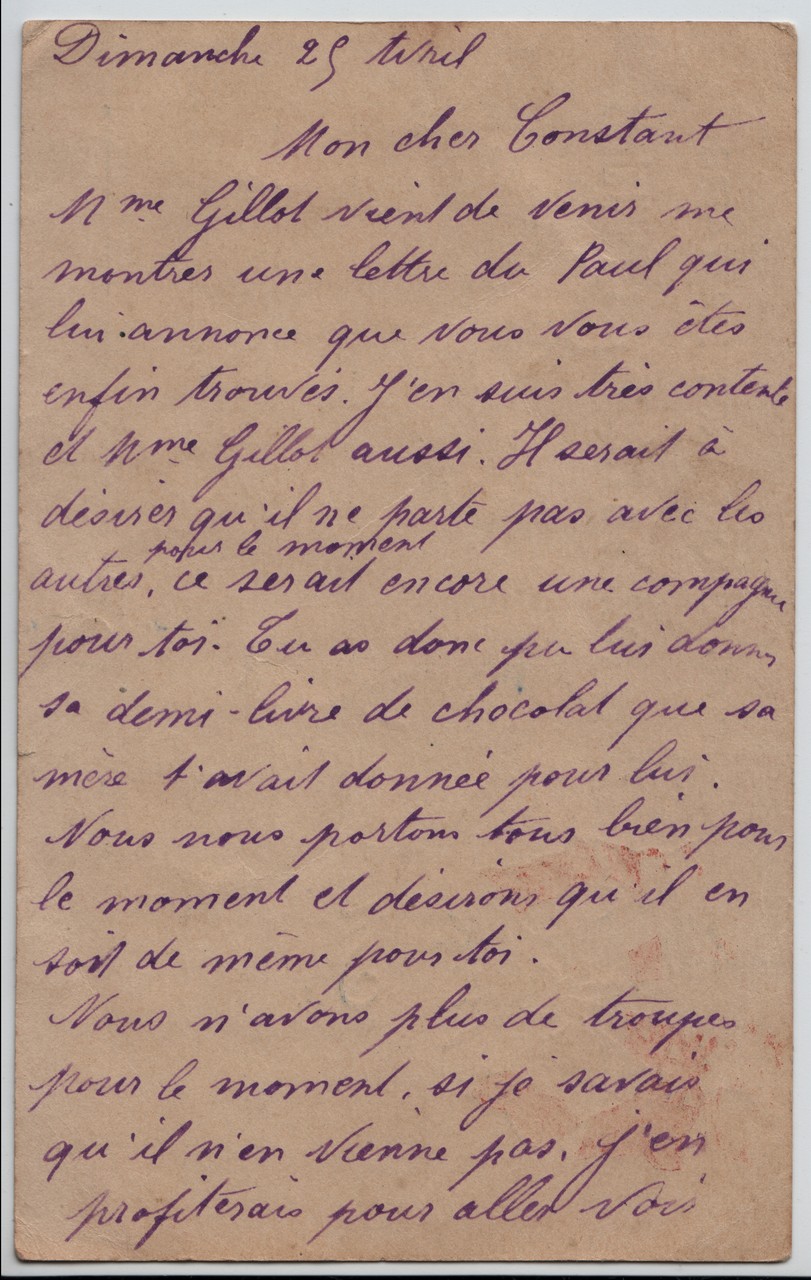 Dimanche 25 Avril
Mon cher Constant
Mme Gillot vient de venir me
montrer une lettre du Paul qui
lui annonce que vous vous êtes
enfin trouvés. J'en suis très contente
et Mme Gillot aussi. Il serait à
désirer qu'il ne parte pas avec les
pour le moment
autres, ce serait encore une compagnie
pour toi. Tu as donc pu lui donner
sa demi-livre de chocolat que sa
mère t'avait donnée pour lui.
Nous nous portons tous bien pour
le moment et désirons qu'il en
soit de même pour toi.
Nous n'avons plus de troupes
pour le moment, si je savais
qu'il n'en vienne pas, j'en
profiterais pour aller voir